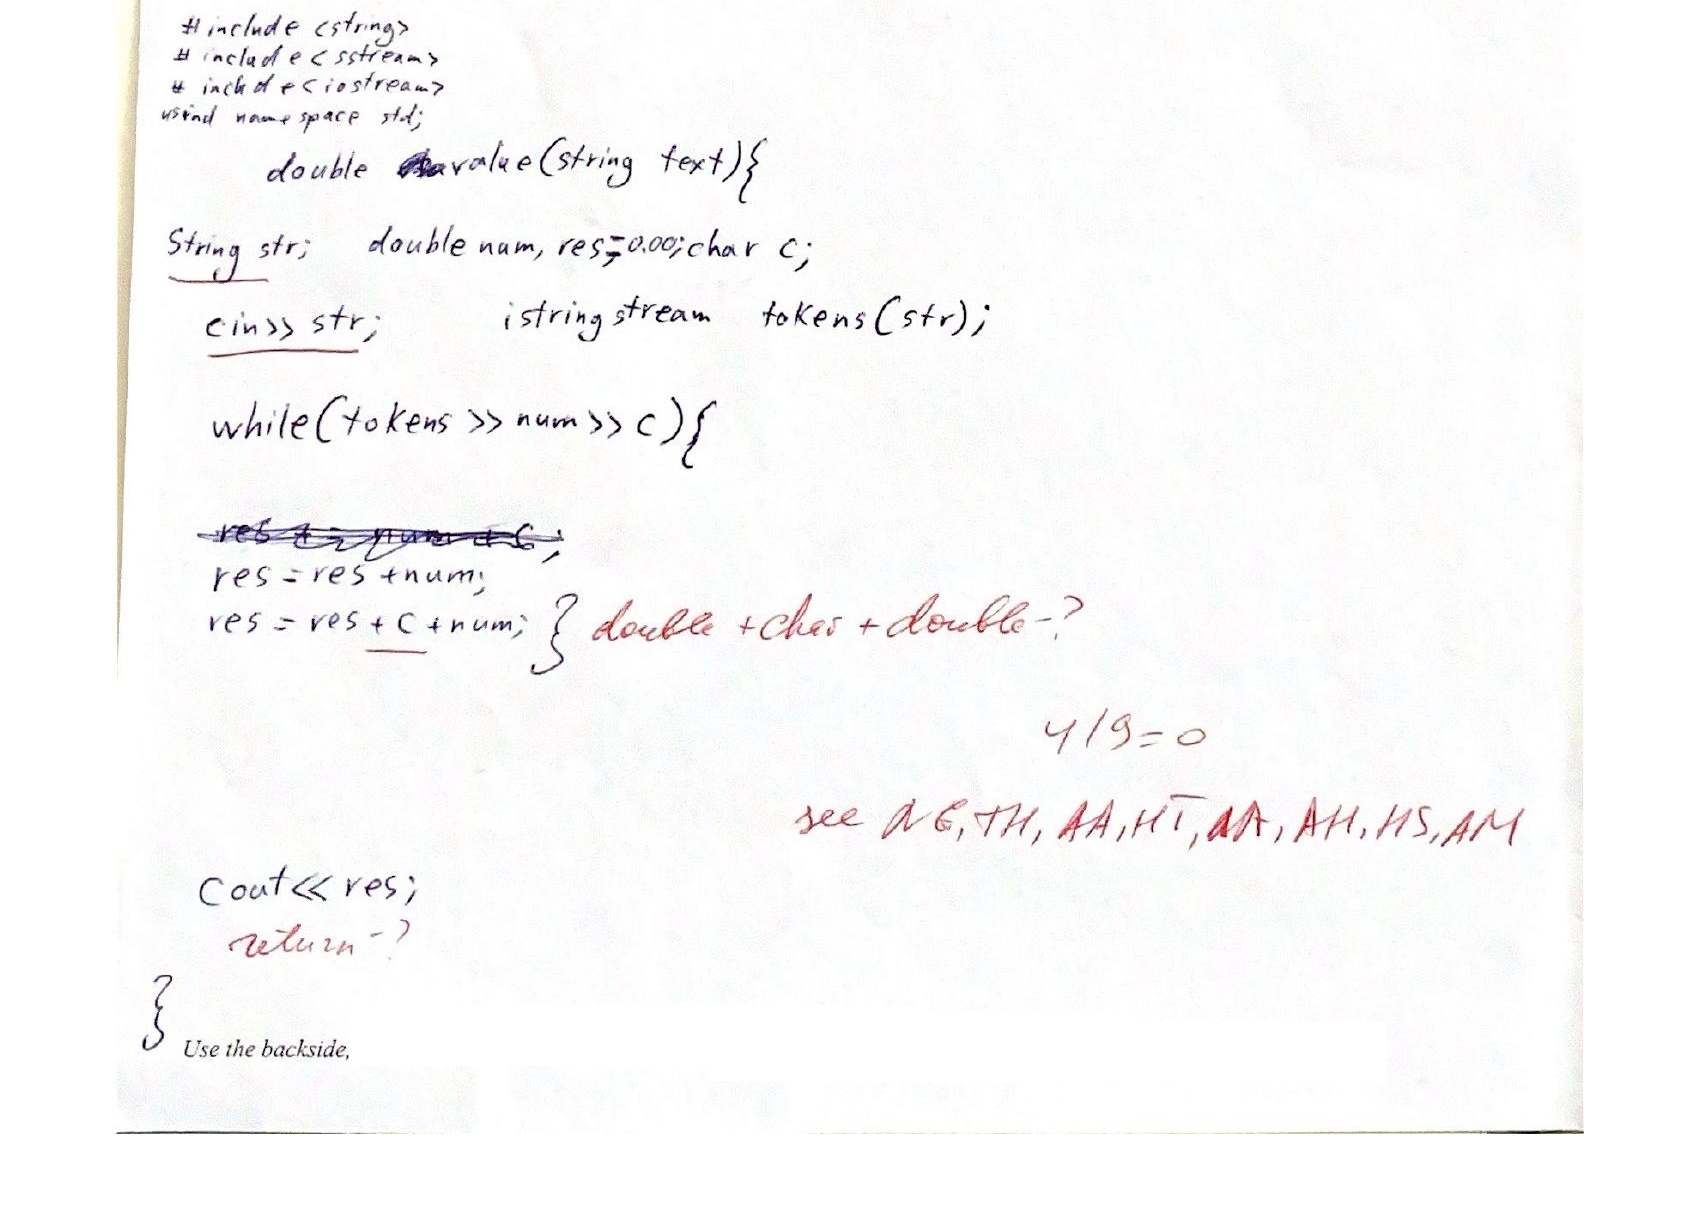 # include <string>
# include < sstream>
# include <iostream>
usind namespace std;
double value(string text){
String str; double num, res=0.00; char c;
cin>> str; istringstream tokens(str);
while(tokens >> num>> c){
res = res +num;
res = res + c +num; } double + char + double -?
4/9=0
see NE, TH, AA, HT, AA, AH, HS, AM
Cout<< res;
return -?
}
Use the backside,